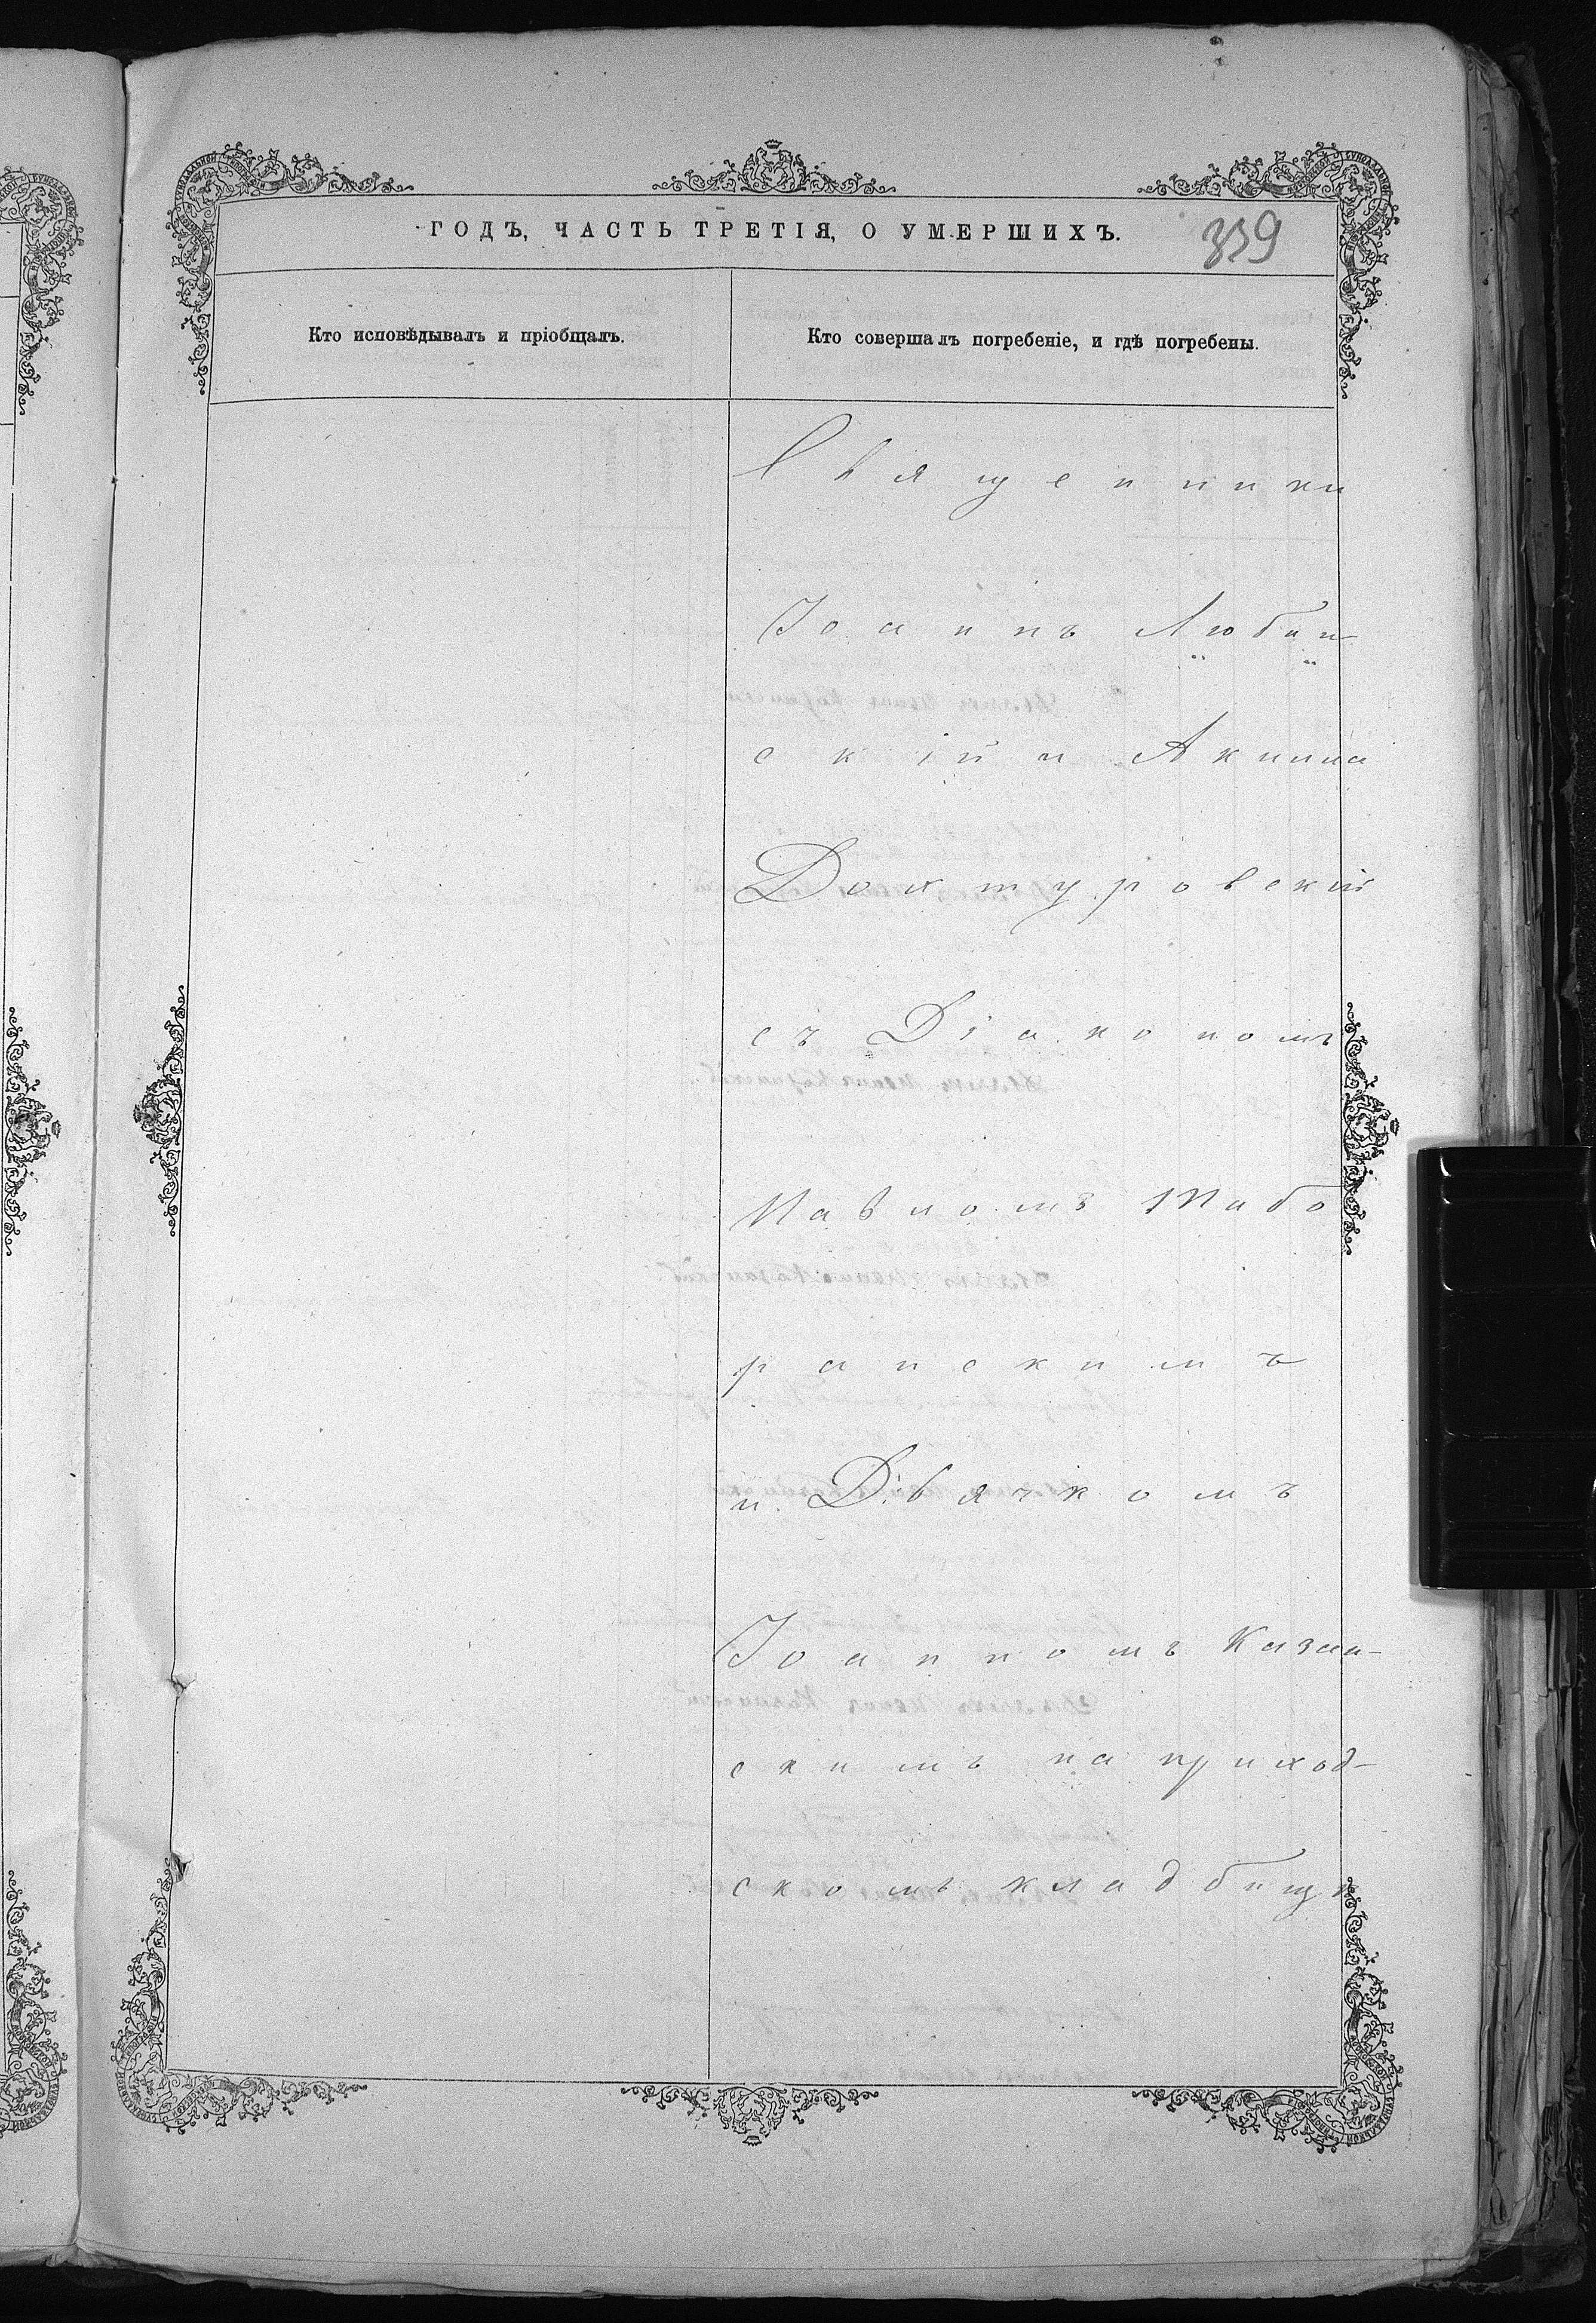 ГОДЪ, ЧАСТЬ ТРЕТІЯ, О УМЕРШИХЪ.
339
Кто исповѣдывалъ и пріобщалъ.
Кто совершалъ погребеніе, и гдѣ погребены.
Священники
Іоаннъ Любин-
скій и Акимъ
Доктуровскій
съ Діакономъ
Павломъ Табо
ранскимъ
и Дьячкомъ
Іоанномъ Казан-
скимъ на приход-
скомъ кладбищѣ